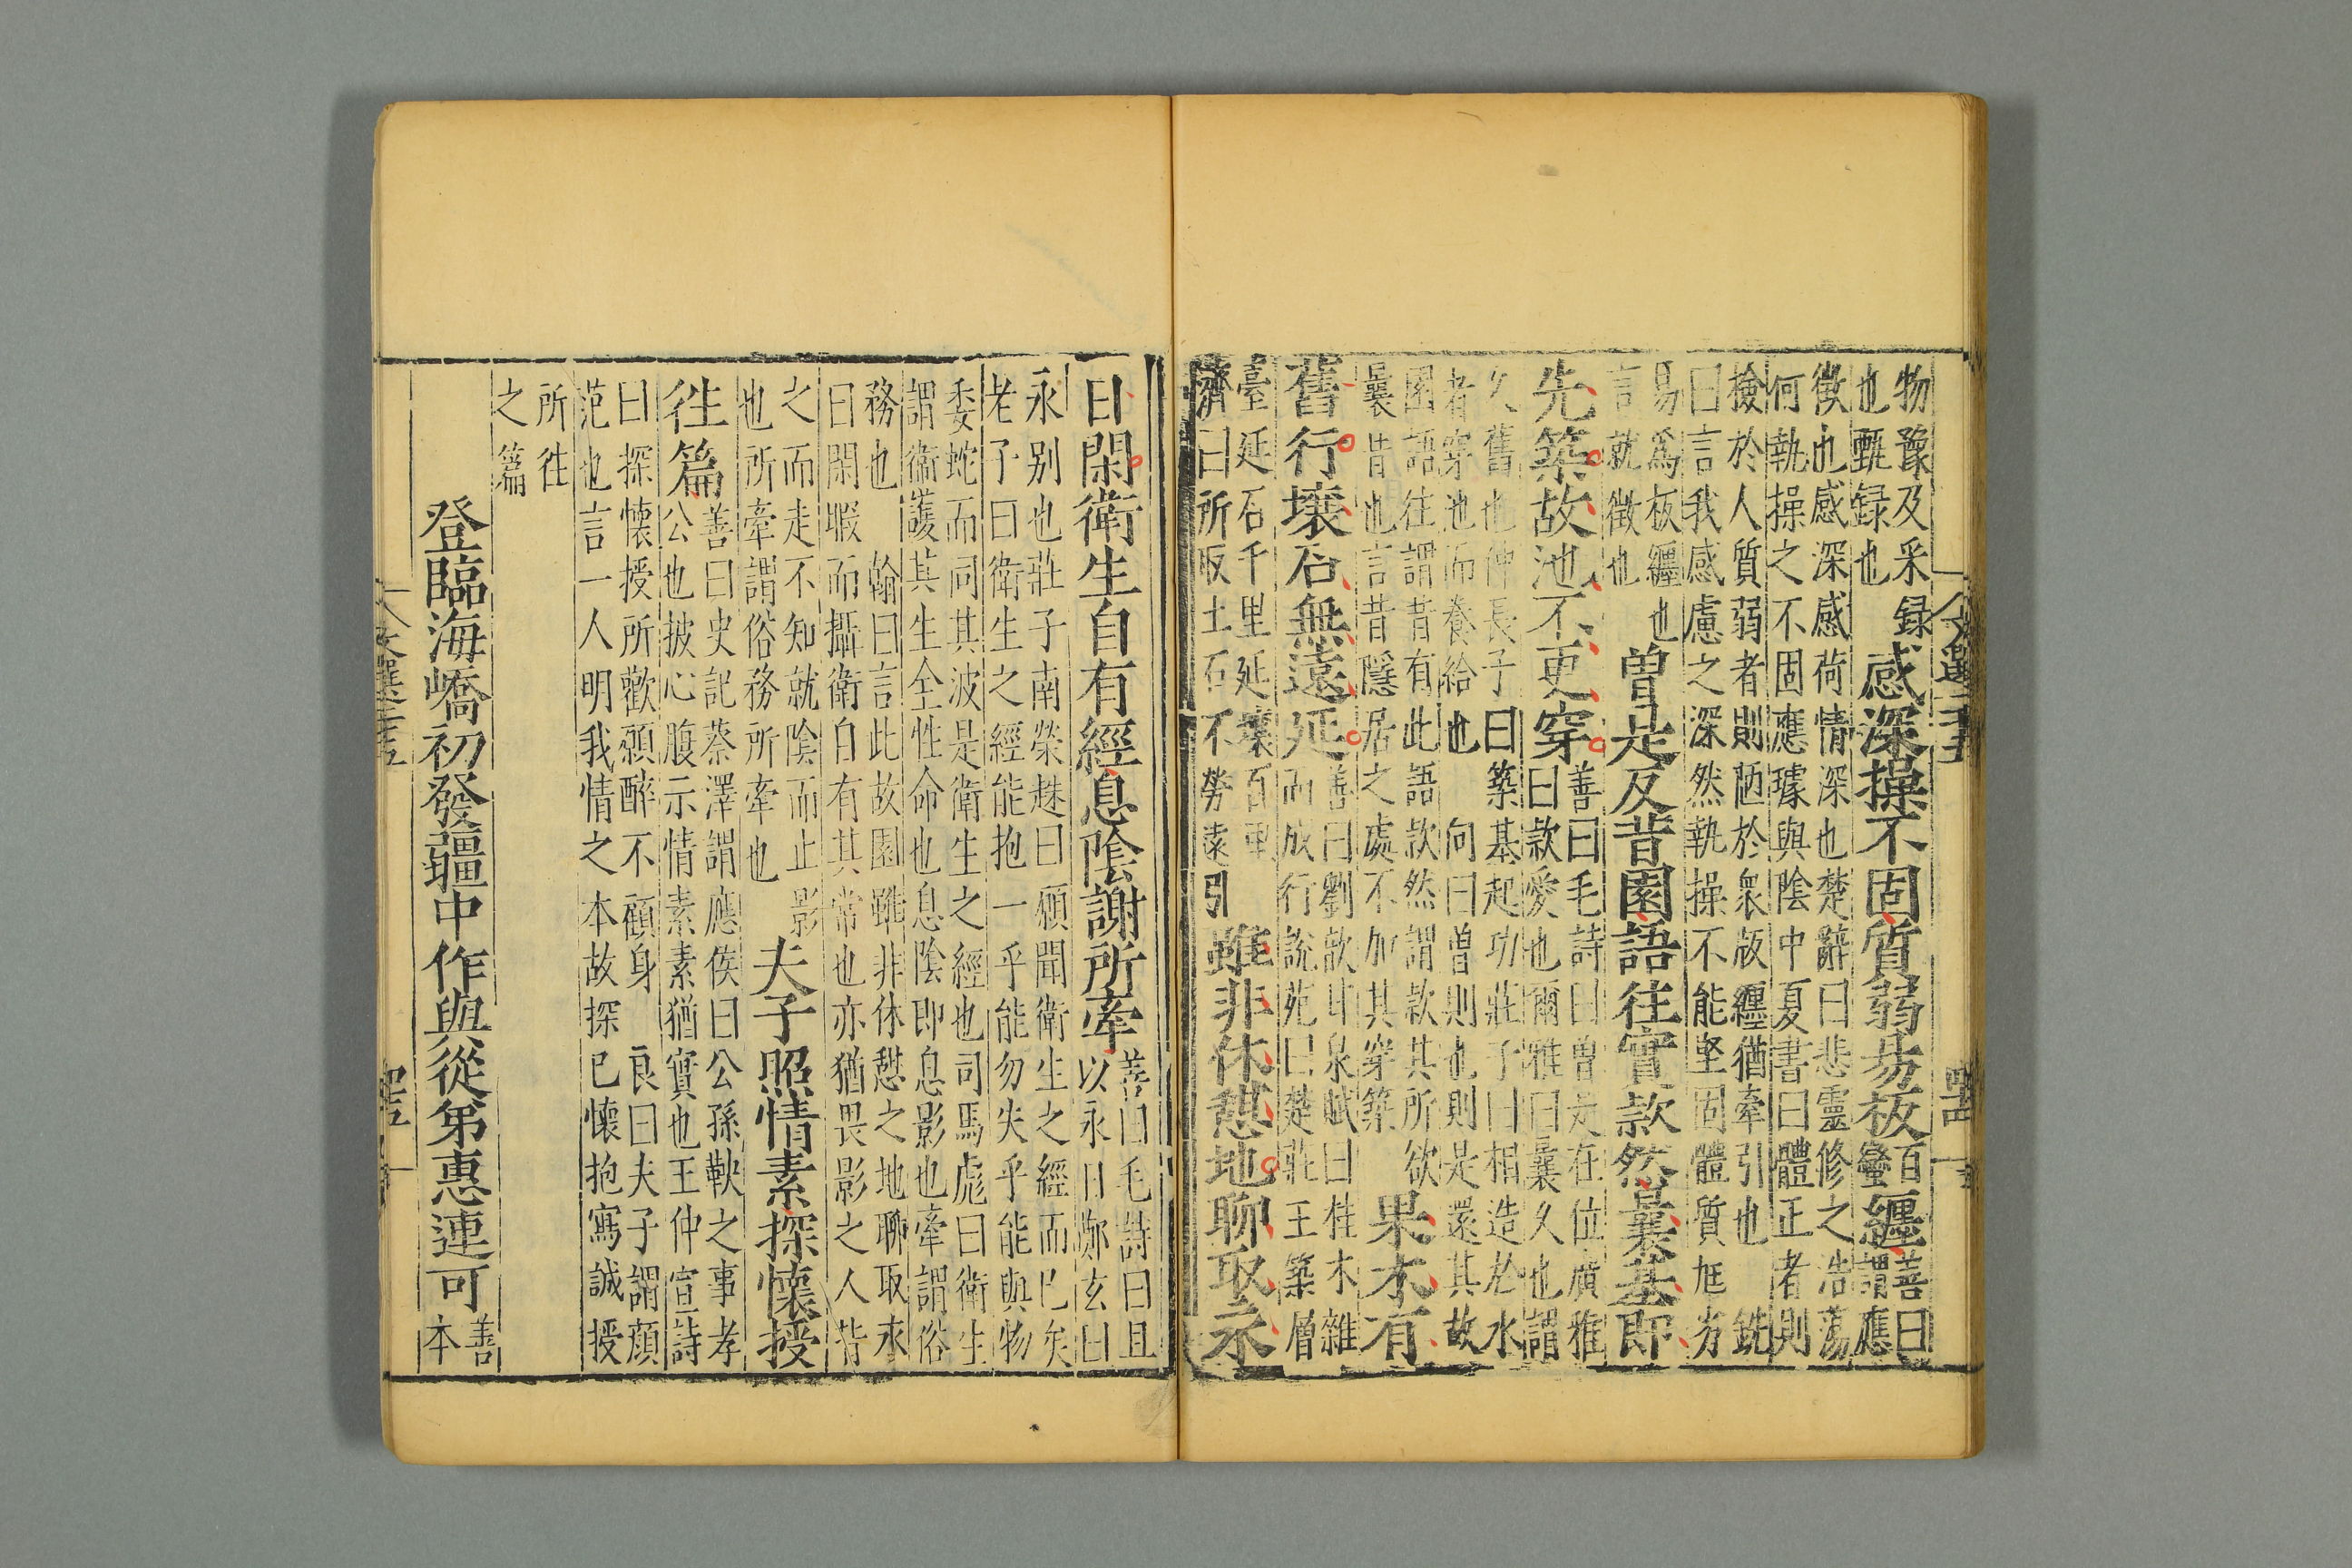 物豫及采録
也甄録也感深操不固質弱易板百蠻纏善曰謂應
徵也感深感荷情深也楚辭曰悲靈修之浩蕩
何執操之不固應璩與陰中夏書曰體正者則
檢於人質弱者則陋於衆版纏猶牽引也 銑
曰言我感慮之深然執操不能堅固體質尫劣
易爲板纏也
言就徵也曽是反昔園語往實款然曩基即
先築故池不更穿善曰毛詩曰曽是在位廣雅曰款愛也爾雅曰曩久也謂
久舊也仲長子曰築基起功莊子曰相造於水
者穿池而養給也 向曰曽則也則是還其故
園語往謂昔有此語款然謂款其所欲
曩昔也言昔隱居之處不加其穿築果木有
舊行壤石無遠延善曰劉歆甘泉賦曰桂木雜而成行說苑曰楚莊王築層
臺延石千里延壤百里
濟曰所取土石不勞遠引雖非休憩地聊取永
日閑衛生自有經息陰謝所牽善曰毛詩曰且以永日鄭玄曰
永别也莊子南榮趎曰願聞衛生之經而已矣
老子曰衛生之經能抱一乎能勿失乎能與物
委蛇而同其波是衛生之經也司馬彪曰衛生
謂衛護其生全性命也息陰即息影也牽謂俗
務也 翰曰言此故園雖非休憩之地聊取永
日閑暇而攝衛自有其常也亦猶畏影之人背
之而走不知就陰而止影
也所牽謂俗務所牽也夫子照情素探懷授
往篇善曰史記蔡澤謂應侯曰公孫鞅之事孝公也披心腹示情素素猶實也王仲宣詩
曰探懷授所歡願醉不顧身 良曰夫子謂顔
范也言一人明我情之本故探已懷抱寫誠授
所往
之篇
登臨海嶠初發疆中作與從弟惠連可善本
文選二十五